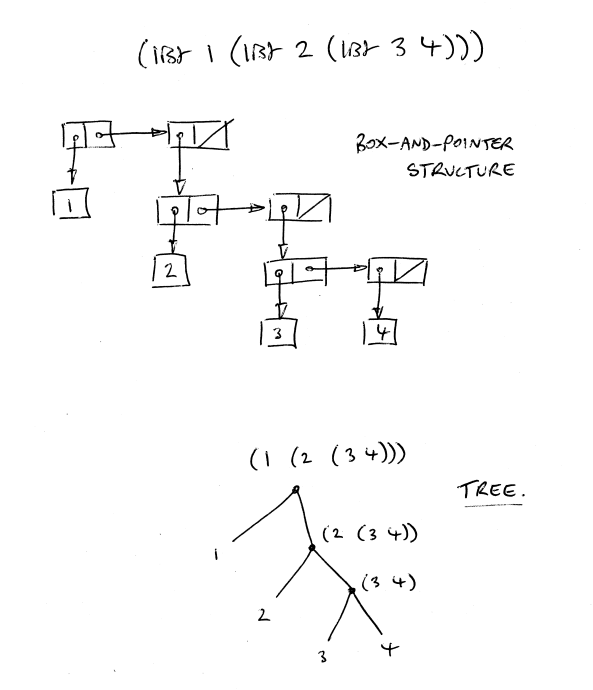 (list 1 (list 2 (list 3 4)))
BOX-AND-POINTER
STRUCTURE
1
2
3 4
(1 (2 (3 4)))
TREE.
(2 (3 4))
1
(3 4)
2
3 4